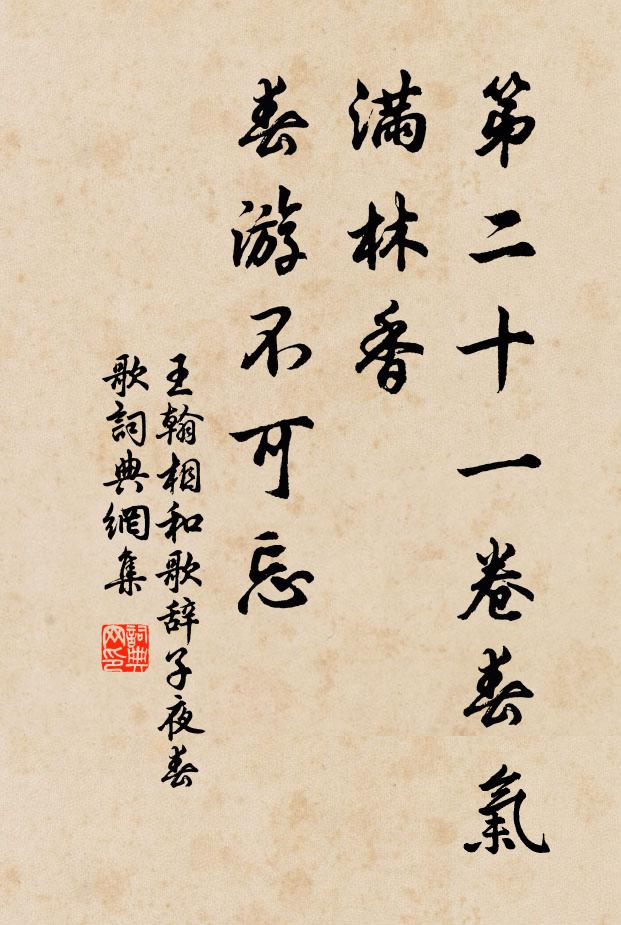 第二十一卷春氣
滿林香
春游不可忘
王翰相和歌辞子夜春
歌詞典網集
詞典
网印